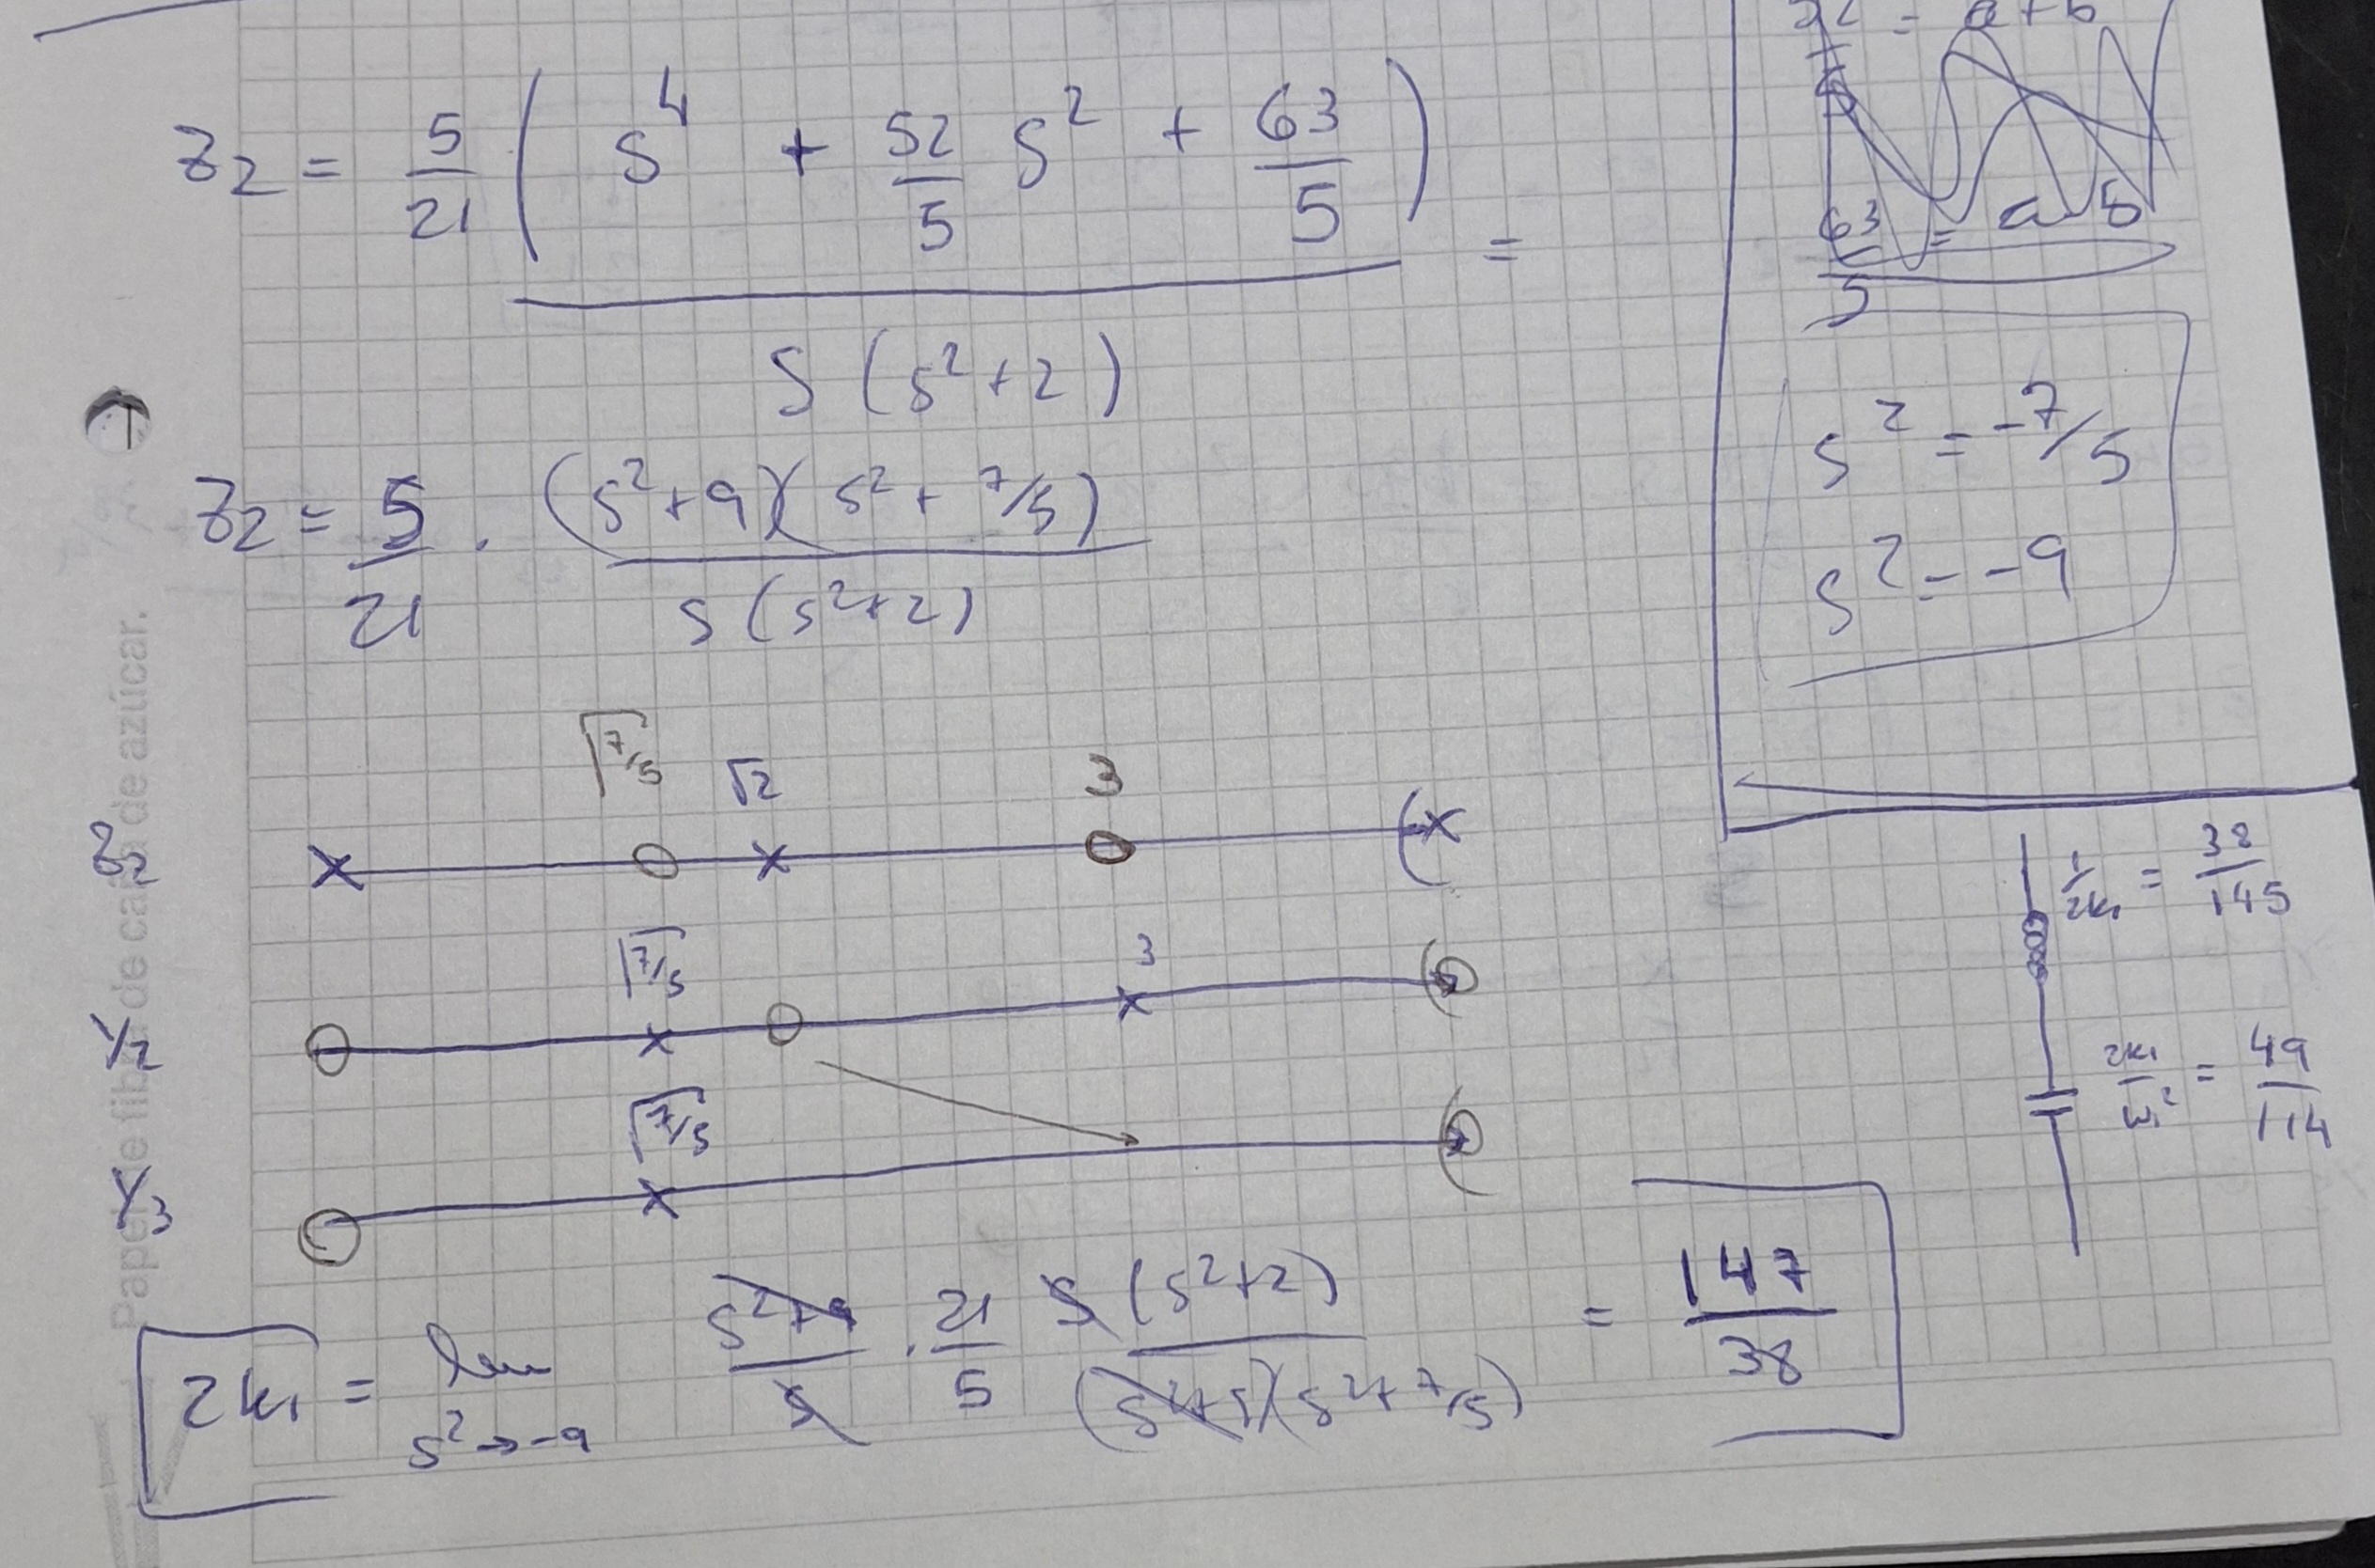 Z₂ = 5/21 (s⁴ + 52/5 s² + 63/5) / s(s²+2) =
Z₂ = 5/21 · (s²+9)(s²+7/5) / s(s²+2)
= a+b
63/5 = a b
s² = -7/5
s² = -9
√7/5 √2 3
Z₂
√7/5 3
Y₂
√7/5
Y₃
1/2k₁ = 38/145
2k₁/w₁² = 49/114
2k₁ = lim s²→-9 s²+9/s · 21/5 s(s²+2) / (s²+9)(s²+7/5) = 147/38
Papel de fibra de caña de azúcar.